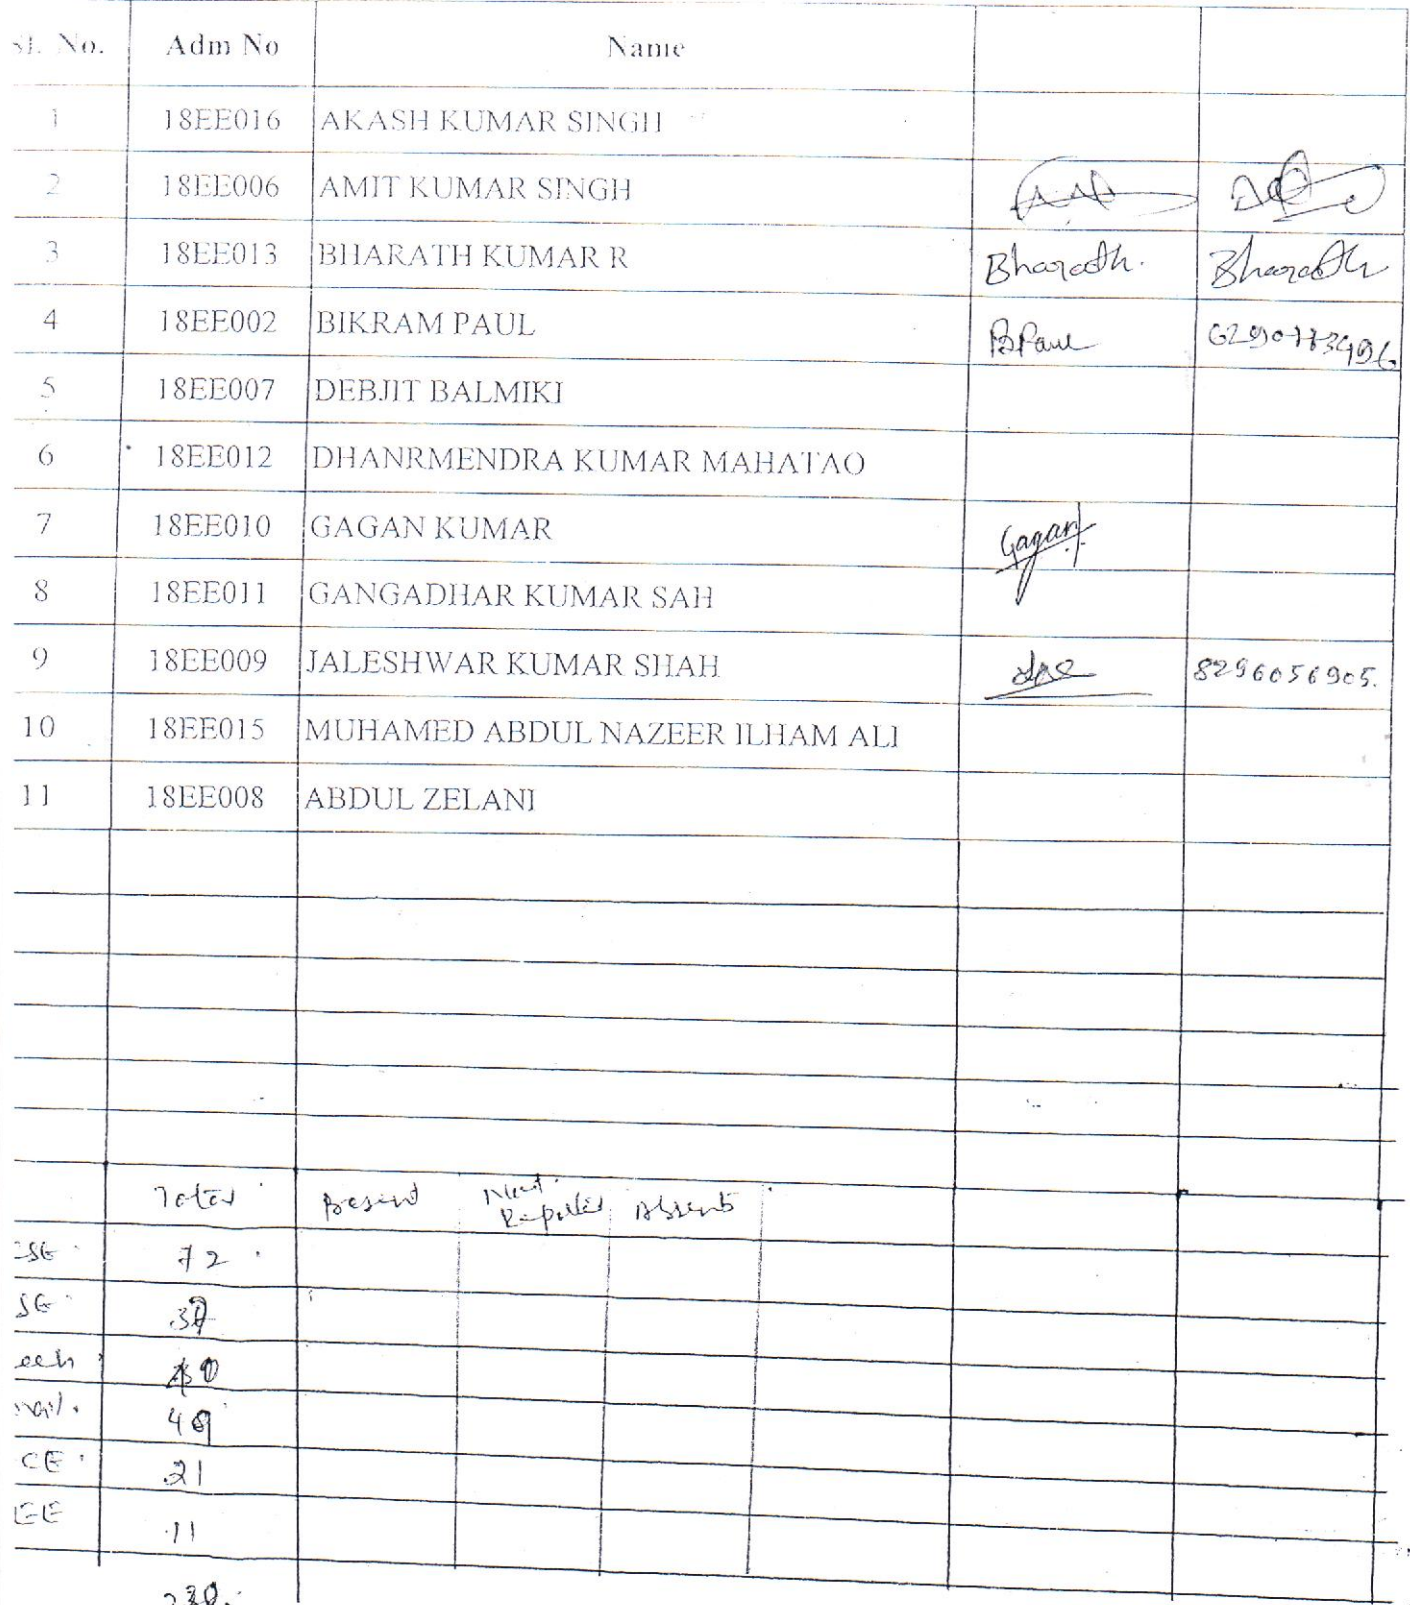 Sl. No. Adm No Name
1 18EE016 AKASH KUMAR SINGH
2 18EE006 AMIT KUMAR SINGH
3 18EE013 BHARATH KUMAR R Bharath. Bharath
4 18EE002 BIKRAM PAUL BPaul
5 18EE007 DEBJIT BALMIKI
6 18EE012 DHANRMENDRA KUMAR MAHATAO
7 18EE010 GAGAN KUMAR Gagan
8 18EE011 GANGADHAR KUMAR SAH
9 18EE009 JALESHWAR KUMAR SHAH 8296056905.
10 18EE015 MUHAMED ABDUL NAZEER ILHAM ALI
11 18EE008 ABDUL ZELANI
Total Present Not Reported Absent
CSE 72
SE
ech
49
CE 21
EE 11
230.